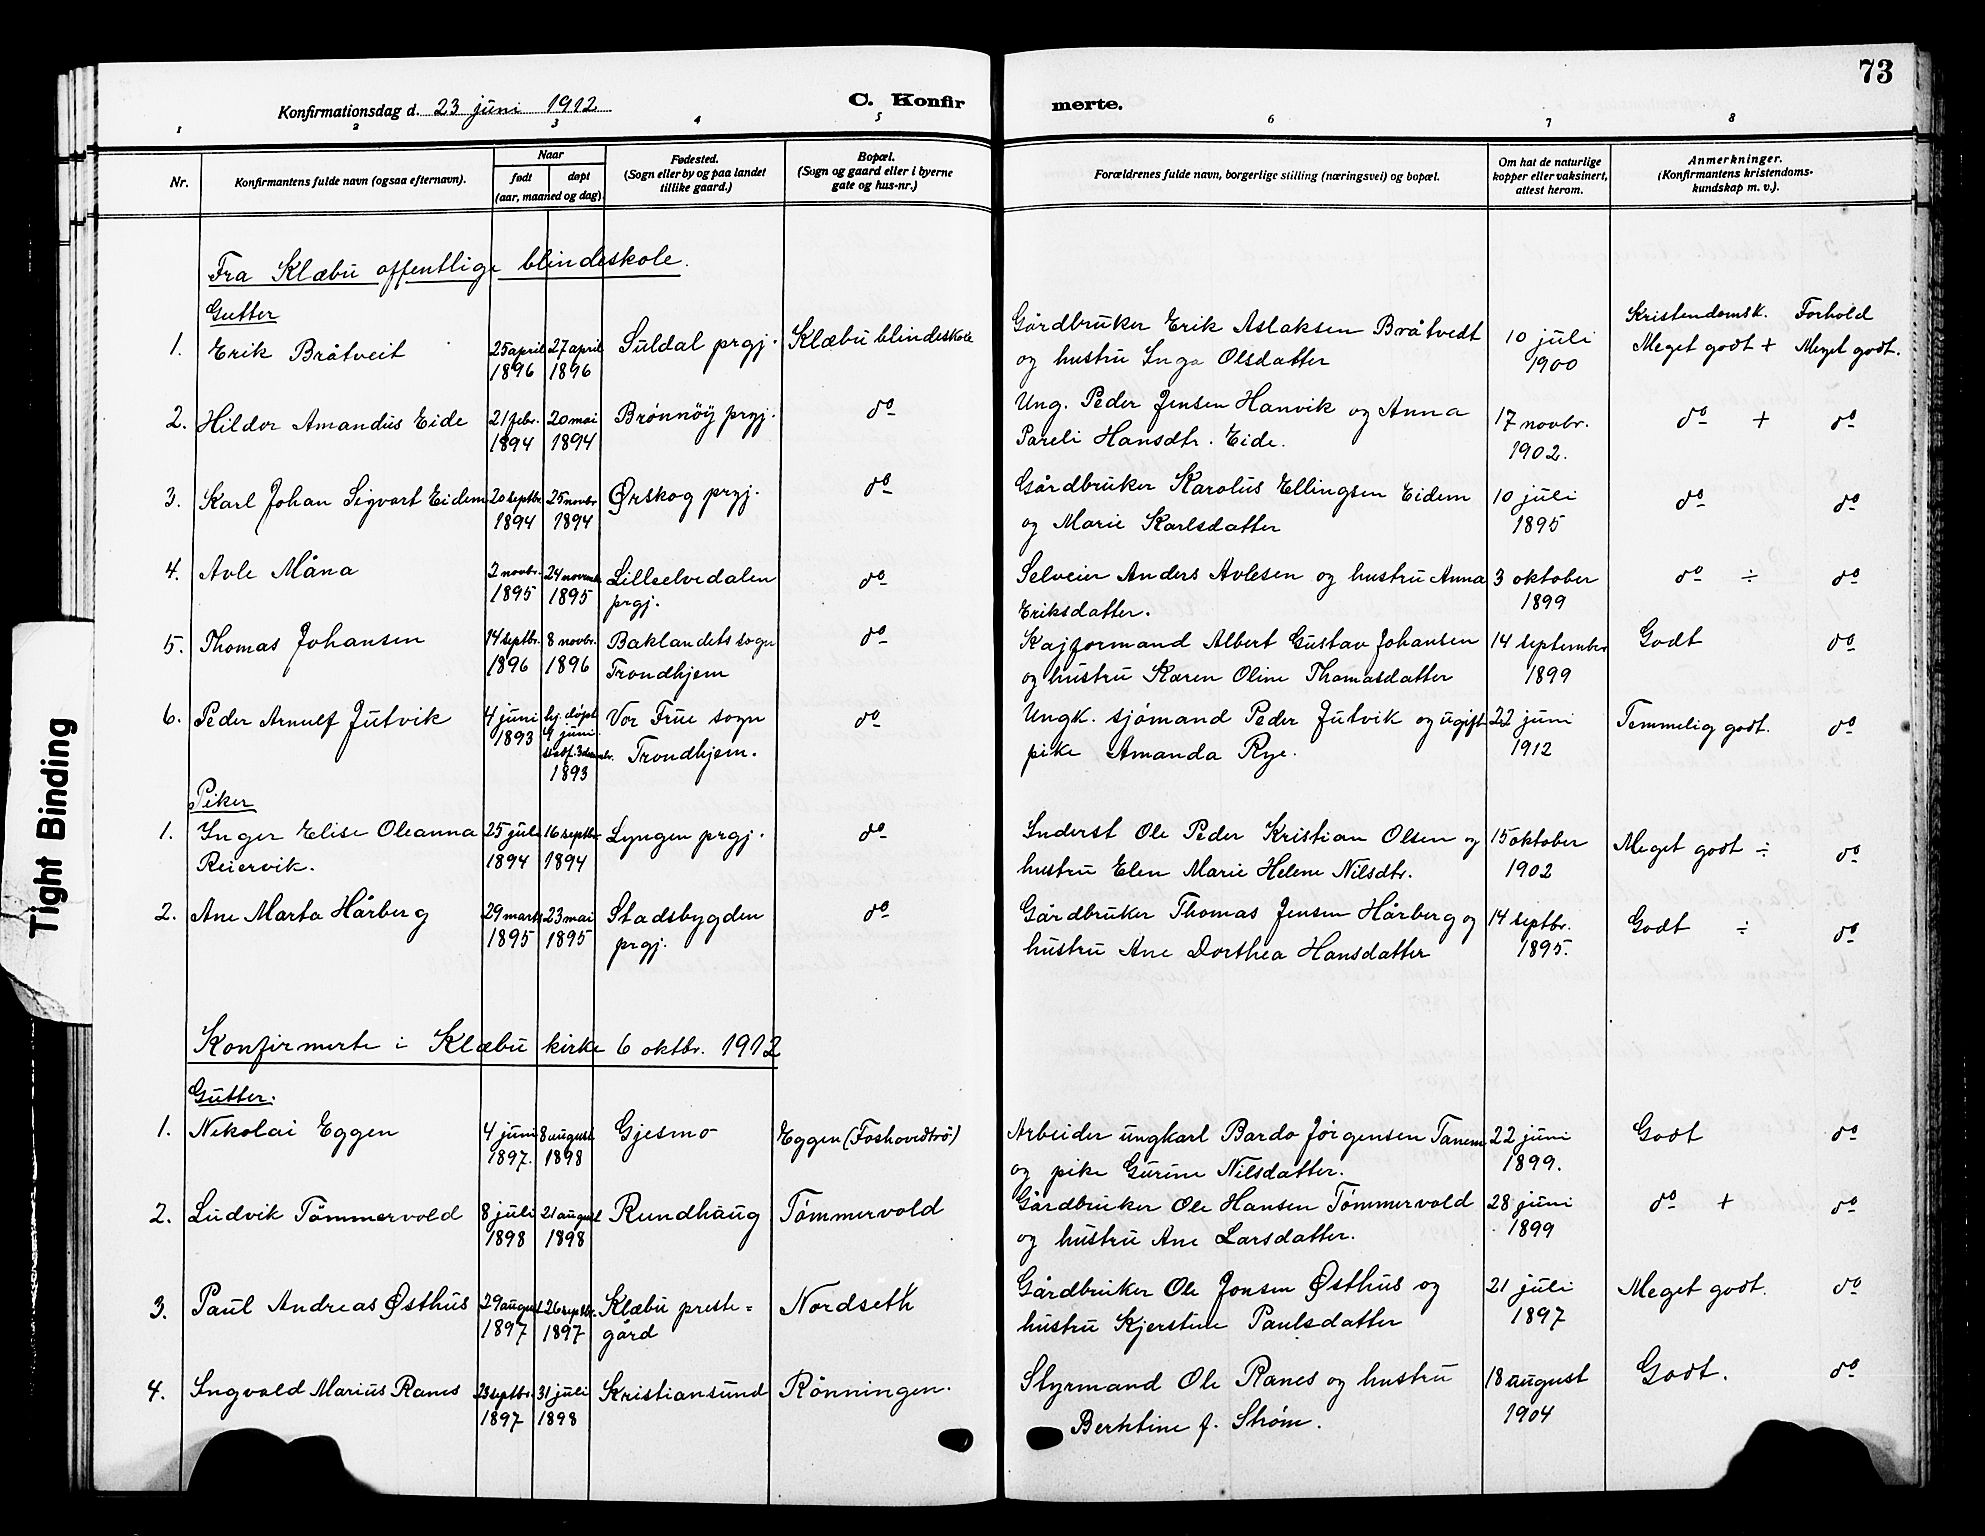 73
Konfirmationsdag d. 23 juni 1912
C. Konfir merte.
1 2 3 4 5 6 7 8
Nr.
Konfirmantens fulde navn (ogsaa efternavn).
Naar
født døpt
(aar, maaned og dag)
Fødested.
(Sogn eller by og paa landet
tillike gaard.)
Bopæl.
(Sogn og gaard eller i byerne
gate og hus-nr.)
Forældrenes fulde navn, borgerlige stilling (næringsvei) og bopæl.
Om hat de naturlige
kopper eller vaksinert,
attest herom.
Anmerkninger.
(Konfirmantens kristendoms-
kundskap m. v.).
Fra Klæbu offentlige blindeskole.
Gutter
Kristendomsk. Forhold
1. Erik Bråtveit 25 april 27 april Suldal prgj. Klæbu blindeskole Gårdbruker Erik Aslaksen Bråtvedt 10 juli Meget godt + Meget godt.
1896 1896 og hustru Inga Olsdatter 1900
2. Hildor Amandus Eide 21 febr. 20 mai Brönnöy prgj. do Ung. Peder Jensen Hanvik og Anna 17 novbr. do + do
1894 1894 Pareli Hansdtr. Eide. 1902.
3. Karl Johan Sigvart Eidem 20 septbr 25 novbr Ørskog prgj. do Gårdbruker Karolus Ellingsen Eidem 10 juli do do
1894 1894 og Marie Karlsdatter 1895
4. Avle Måna 2 novbr. 24 novembr Lilleelvedalen do Selveier Anders Avlesen og hustru Anna 3 oktober do ÷ do
1895 1895 prgj. Eriksdatter. 1899
5. Thomas Johansen 14 septbr. 8 novbr. Baklandets sogn do Kajformand Albert Gustav Johansen 14 september Godt do
1896 1896 Trondhjem og hustru Karen Oline Thomasdatter 1899
6. Peder Arnulf Jutvik 4 juni hj. döpt Vor Frue sogn do Ungk. sjömand Peder Jutvik og ugift 22 juni Temmelig godt. do
1893 9 juni Trondhjem. pike Amanda Rye. 1912
1893
Piker
1. Inger Elise Oleanna 25 juli 16 septbr Lyngen prgj. do Inderst Ole Peder Kristian Olsen og 15 oktober Meget godt ÷ do
Reiervik. 1894 1894 hustru Elen Marie Helene Nilsdtr. 1902
2. Ane Marta Hårberg 29 marts 23 mai Stadsbygden do Gårdbruker Thomas Jensen Hårberg og 14 septbr. Godt ÷ do
1895 1895 prgj. hustru Ane Dorthea Hansdatter 1895.
Konfirmerte i Klæbu kirke 6 oktbr. 1912
Gutter.
1. Nikolai Eggen 4 juni 8 august Gjesmo Eggen (Foshovedtrö) Arbeider ungkarl Bardo Jörgensen Tanem 22 juni Godt do
1897. 1898 og pike Gurine Nilsdatter. 1899.
2. Ludvik Tömmervold 8 juli 21 august Rundhaug Tömmervold Gårdbruker Ole Hansen Tömmervold 28 juni do + do
1898 1898 og hustru Ane Larsdatter. 1899
3. Paul Andreas Østhus 29 august 26 septbr. Klæbu preste= Nordseth Gårdbruker Ole Jonsen Østhus og 21 juli Meget godt. do
1897 1897 gård hustru Kjerstine Paulsdatter 1897
4. Ingvald Marius Ranes 23 septbr. 31 juli Kristiansund Rönningen. Styrmand Ole Ranes og hustru 18 august Godt. do
1897 1898 Berktine f. Ström. 1904
Tight Binding